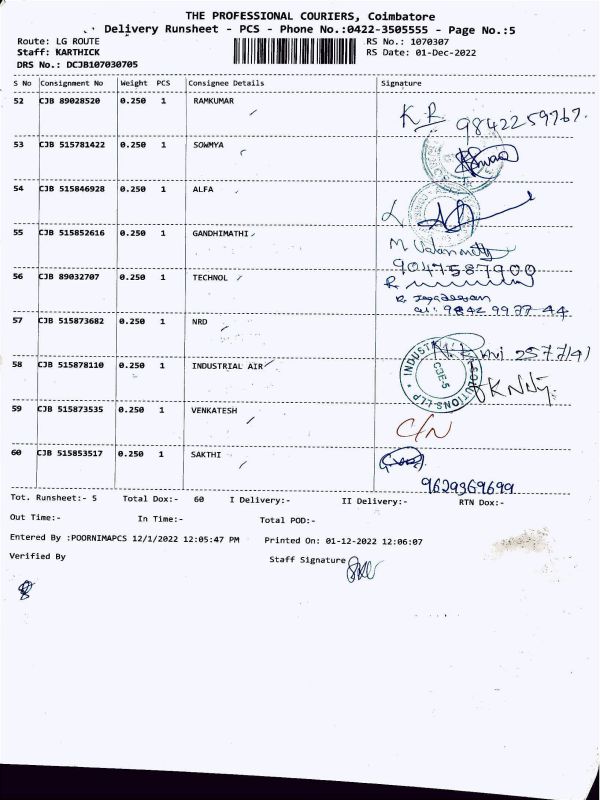 THE PROFESSIONAL COURIERS, Coimbatore
Delivery Runsheet - PCS - Phone No.:0422-3505555 - Page No.:5
Route: LG ROUTE
RS No.: 1070307
Staff: KARTHICK
RS Date: 01-Dec-2022
DRS No.: DCJB107030705
S No Consignment No Weight PCS Consignee Details Signature
52 CJB 89028520 0.250 1 RAMKUMAR
KR 9842259767.
53 CJB 515781422 0.250 1 SOWMYA
54 CJB 515846928 0.250 1 ALFA
55 CJB 515852616 0.250 1 GANDHIMATHI
9047587900
56 CJB 89032707 0.250 1 TECHNOL
57 CJB 515873682 0.250 1 NRD
58 CJB 515878110 0.250 1 INDUSTRIAL AIR
59 CJB 515873535 0.250 1 VENKATESH
C/N
60 CJB 515853517 0.250 1 SAKTHI
9629369699
Tot. Runsheet:- 5 Total Dox:- 60 I Delivery:- II Delivery:- RTN Dox:-
Out Time:- In Time:- Total POD:-
Entered By :POORNIMAPCS 12/1/2022 12:05:47 PM Printed On: 01-12-2022 12:06:07
Verified By Staff Signature